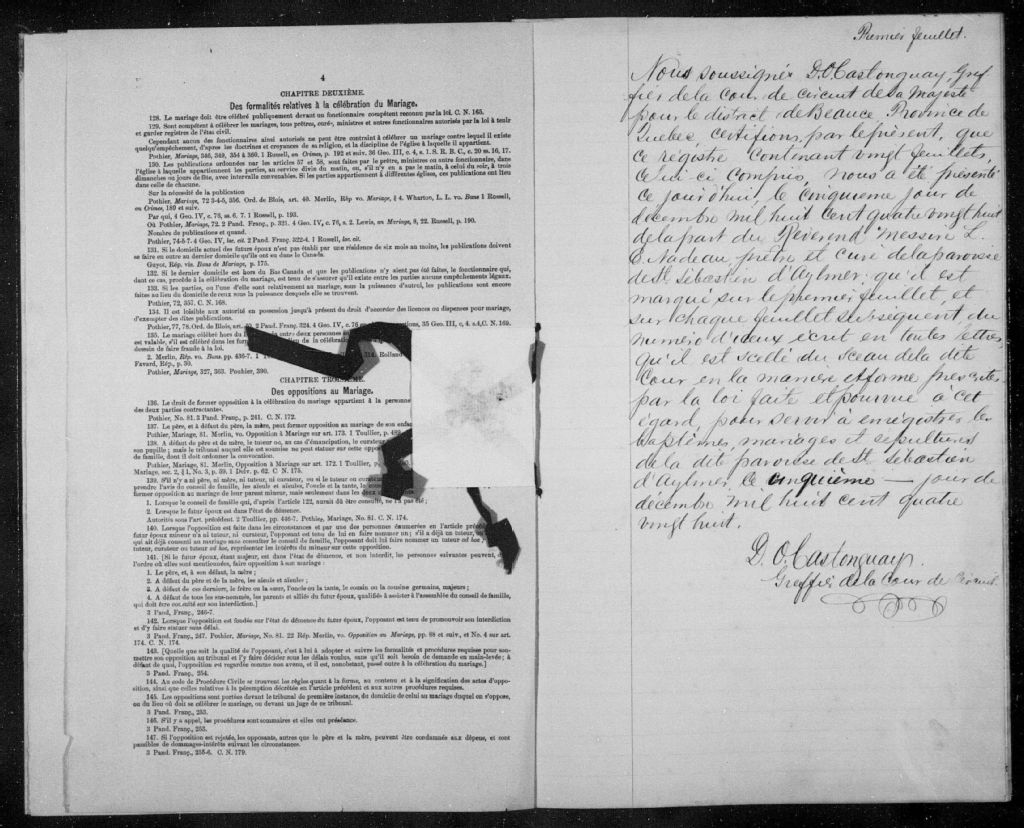 4
CHAPITRE DEUXIÈME.
Des formalités relatives à la célébration du Mariage.
128. Le mariage doit être célébré publiquement devant un fonctionnaire compétent reconnu par la loi. C. N. 165.
129. Sont compétents à célébrer les mariages, tous prêtres, curés, ministres et autres fonctionnaires autorisés par la loi à tenir
et garder registres de l'état civil.
Cependant aucun des fonctionnaires ainsi autorisés ne peut être contraint à célébrer un mariage contre lequel il existe
quelqu'empêchement, d'après les doctrines et croyances de sa religion, et la discipline de l'église à laquelle il appartient.
Pothier, Mariage, 346, 349, 354 & 360. 1 Russell, on Crimes, p. 192 et suiv. 36 Geo. III, c. 4, s. 1. S. R. B. C., c. 20 ss. 16, 17.
130. Les publications ordonnées par les articles 57 et 58, sont faites par le prêtre, ministre ou autre fonctionnaire, dans
l'église à laquelle appartiennent les parties, au service divin du matin, ou, s'il n'y en a pas le matin, à celui du soir, à trois
dimanches ou jours de fête, avec intervalle convenables. Si les parties appartiennent à différentes églises, ces publications ont lieu
dans celle de chacune.
Sur la nécessité de la publication
Pothier, Mariage, 72 3-4-5, 356. Ord. de Blois, art. 40. Merlin, Rép vo. Mariage, § 4. Wharton, L. L. vo. Bans 1 Rossell,
on Crimes, 189 et suiv.
Par qui, 4 Geo. IV, c. 76, ss. 6, 7. 1 Rossell, p. 193.
Où Pothier, Mariage, 72. 2 Pand. Franç., p. 321. 4 Geo. IV, c. 76, s. 2. Lewis, on Mariage, 8, 22. Russell, p. 190.
Nombre de publications et quand.
Pothier, 74-5-7. 4 Geo. IV, loc. cit. 2 Pand. Franç. 322-4. 1 Rossell, loc. cit.
131. Si le domicile actuel des futurs époux n'est pas établi par une résidence de six mois au moins, les publications doivent
se faire en outre au dernier domicile qu'ils ont eu dans le Canada.
Guyot, Rép. vis. Bans de Mariage, p. 175.
132. Si le dernier domicile est hors du Bas Canada et que les publications n'y aient pas été faites, le fonctionnaire qui,
dant ce cas, procède à la célébration du mariage, est tenu de s'assurer qu'il existe entre les parties aucuns empêchements légaux.
133. Si les parties, ou l'une d'elle sont relativement au mariage, sous la puissance d'autrui, les publications sont encore
faites au lieu du domicile de ceux sous la puissance desquels elle se trouvent.
Pothier, 72, 357. C. N. 168.
134. Il est loisible aux autorité en possession jusqu'à présent du droit d'accorder des licences ou dispenses pour mariage,
d'exempter des dites publications.
Pothier, 77, 78. Ord. de Blois, art. 2 Pand. Franç. 324. 4 Geo. IV, c. 76 35 Geo. III, c. 4. s.4, C. N. 169.
135. Le mariage célébré hors du entre deux personnes
est valable, s'il est célébré dans les for lieu de la célébration
dessein de faire fraude à la loi.
2. Merlin, Rép. vo. Bans. pp. 436-7. 314. Rolland
Favard, Rép., p. 50.
Pothier, Mariage, 327, 363. Pouhier, 390.
CHAPITRE TROISIÈME.
Des oppositions au Mariage.
136. Le droit de former opposition à la célébration du mariage appartient à la personne
des deux parties contractantes.
Pothier, No. 81. 3 Pand. Franç., p. 241. C. N. 172.
137. Le père, et à défaut du père, la mère, peut former opposition au mariage de son enfa
Pothier, Mariage, 81. Merlin, vo. Opposition à Mariage sur art. 173. 1 Toullier, p. 489
138. A défaut de père et de mère, le tuteur ou, au cas d'émancipation, le curateur
son pupille; mais le tribunal auquel elle est soumise ne peut statuer sur cette oppos
de famille, dont il doit ordonner la convocation.
Pothier, Mariage, 81. Merlin, Opposition à Mariage sur art. 172. 1 Toullier, p
Mariage, sec. 2, § 1, No. 3, p. 59. 1 Delv. p. 62. C. N. 175.
139. S'il n'y a ni père, ni mère, ni tuteur, ni curateur, ou si le tuteur ou curat
prendre l'avis du conseil de famille, les aïeuls et aïeules, l'oncle et la tante, le
former opposition au mariage de leur parent mineur, mais seulement dans les deux
1. Lorsque le conseil de famille qui, d'après l'article 122, aurait dû être consulté, ne l'a pas été;
2. Lorsque le futur époux est dans l'état de démence.
Autorités sous l'art. précédent 2 Toullier, pp. 446-7. Pothier, Mariage, No. 81. C. N. 174.
140. Lorsque l'opposition est faite dans les circonstances et par une des personnes énumérées en l'article précé
futur époux mineur n'a ni tuteur, ni curateur, l'opposant est tenu de lui en faire nommer un; s'il a déjà un tuteur,
qui ait déjà consenti au mariage sans consulter le conseil de famille, l'opposant doit lui faire nommer un tuteur ad hoc,
tuteur, curateur ou tuteur ad hoc, représenter les intérêts du mineur sur cette opposition.
141. [Si le futur époux, étant majeur, est dans l'état de démence, et non interdit, les personnes suivantes peuvent,
l'ordre où elles sont mentionnées, faire opposition à son mariage:
1. Le père, et, à son défaut, la mère;
2. A défaut du père et de la mère, les aïeuls et aïeules;
3. A défaut de ces derniers, le frère ou la sœur, l'oncle ou la tante, le cousin ou la cousine germains, majeurs;
4. A défaut de tous les sus-nommés, les parents et alliés du futur époux, qualifiés à assister à l'assemblée du conseil de famille,
qui doit être consulté sur son interdiction.]
3 Pand. Franç., 246-7.
142. Lorsque l'opposition est fondée sur l'état de démence du futur époux, l'opposant est tenu de promouvoir son interdiction
et d'y faire statuer sans délai.
3 Pand. Franç., 247. Pothier, Mariage, No. 81. 22 Rép. Merlin, vo. Opposition au Mariage, pp. 68 et suiv., et No. 4 sur art.
174. C. N. 174.
143. [Quelle que soit la qualité de l'opposant, c'est à lui à adopter et suivre les formalités et procédures requises pour sou-
mettre son opposition au tribunal et l'y faire décider sous les délais voulus, sans qu'il soit besoin de demande en main-levée; à
défaut de quoi, l'opposition est regardée comme non avenu, et il est, nonobstant, passé outre à la célébration du mariage.]
3 Pand. Franç., 254.
144. Au code de Procédure Civile se trouvent les règles quant à la forme, au contenu et à la signification des actes d'oppo-
sition, ainsi que celles relatives à la péremption décrétée en l'article précédent et aux autres procédures requises.
145. Les oppositions sont portées devant le tribunal de première instance, du domicile de celui au mariage duquel on s'oppose,
ou du lieu où doit se célébrer le mariage, ou devant un juge de ce tribunal.
3 Pand. Franç., 253.
146. S'il y a appel, les procédures sont sommaires et elles ont préséance.
3 Pand. Franç., 253.
147. Si l'opposition est rejetée, les opposants, autres que le père et la mère, peuvent être condamnés aux dépens, et sont
passibles de dommages-intérêts suivant les circonstances.
3 Pand. Franç., 255-6. C. N. 179.
Premier feuillet.
Nous soussigné D. O. Castonguay, Gref
fier de la Cour de circuit de sa Majesté
pour le district de Beauce, Province de
Québec, certifions, par le présent, que
ce régistre contenant vingt feuillets,
celui-ci compris, nous a été présenté
ce jourd'hui, le cinquieme jour de
décembre mil huit cent quatre vingt huit
de la part du Révérend Messire L.
E. Nadeau prêtre et curé de la paroisse
de St. Sébastien d'Aylmer; qu'il est
marqué sur le premier feuillet, et
sur chaque feuillet subséquent du
numéro d'iceux écrit en toutes lettres,
qu'il est scellé du sceau de la dite
Cour en la manière et forme prescrites
par la loi faite et pourvue à cet
égard, pour servir à enrégistrer les
baptêmes, mariages et sépultures
de la dite paroisse de St. Sébastien
d'Aylmer, le cinquième — jour de
décembre mil huit cent quatre
vingt huit.
D. O. Castonguay
Greffier de la Cour de Circuit